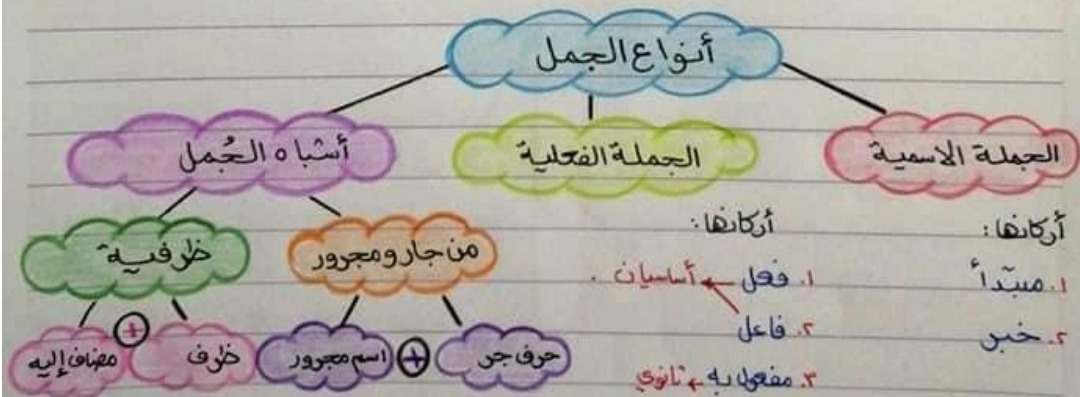 أنواع الجمل
الجملة الاسمية
الجملة الفعلية
أشباه الجُمل
أركانها:
١. مبتدأ
٢. خبر
أركانها:
١. فعل ← أساسيان .
٢. فاعل
٣. مفعول به ← ثانوي
من جار ومجرور
ظرفية
حرف جر + اسم مجرور
ظرف + مضاف إليه